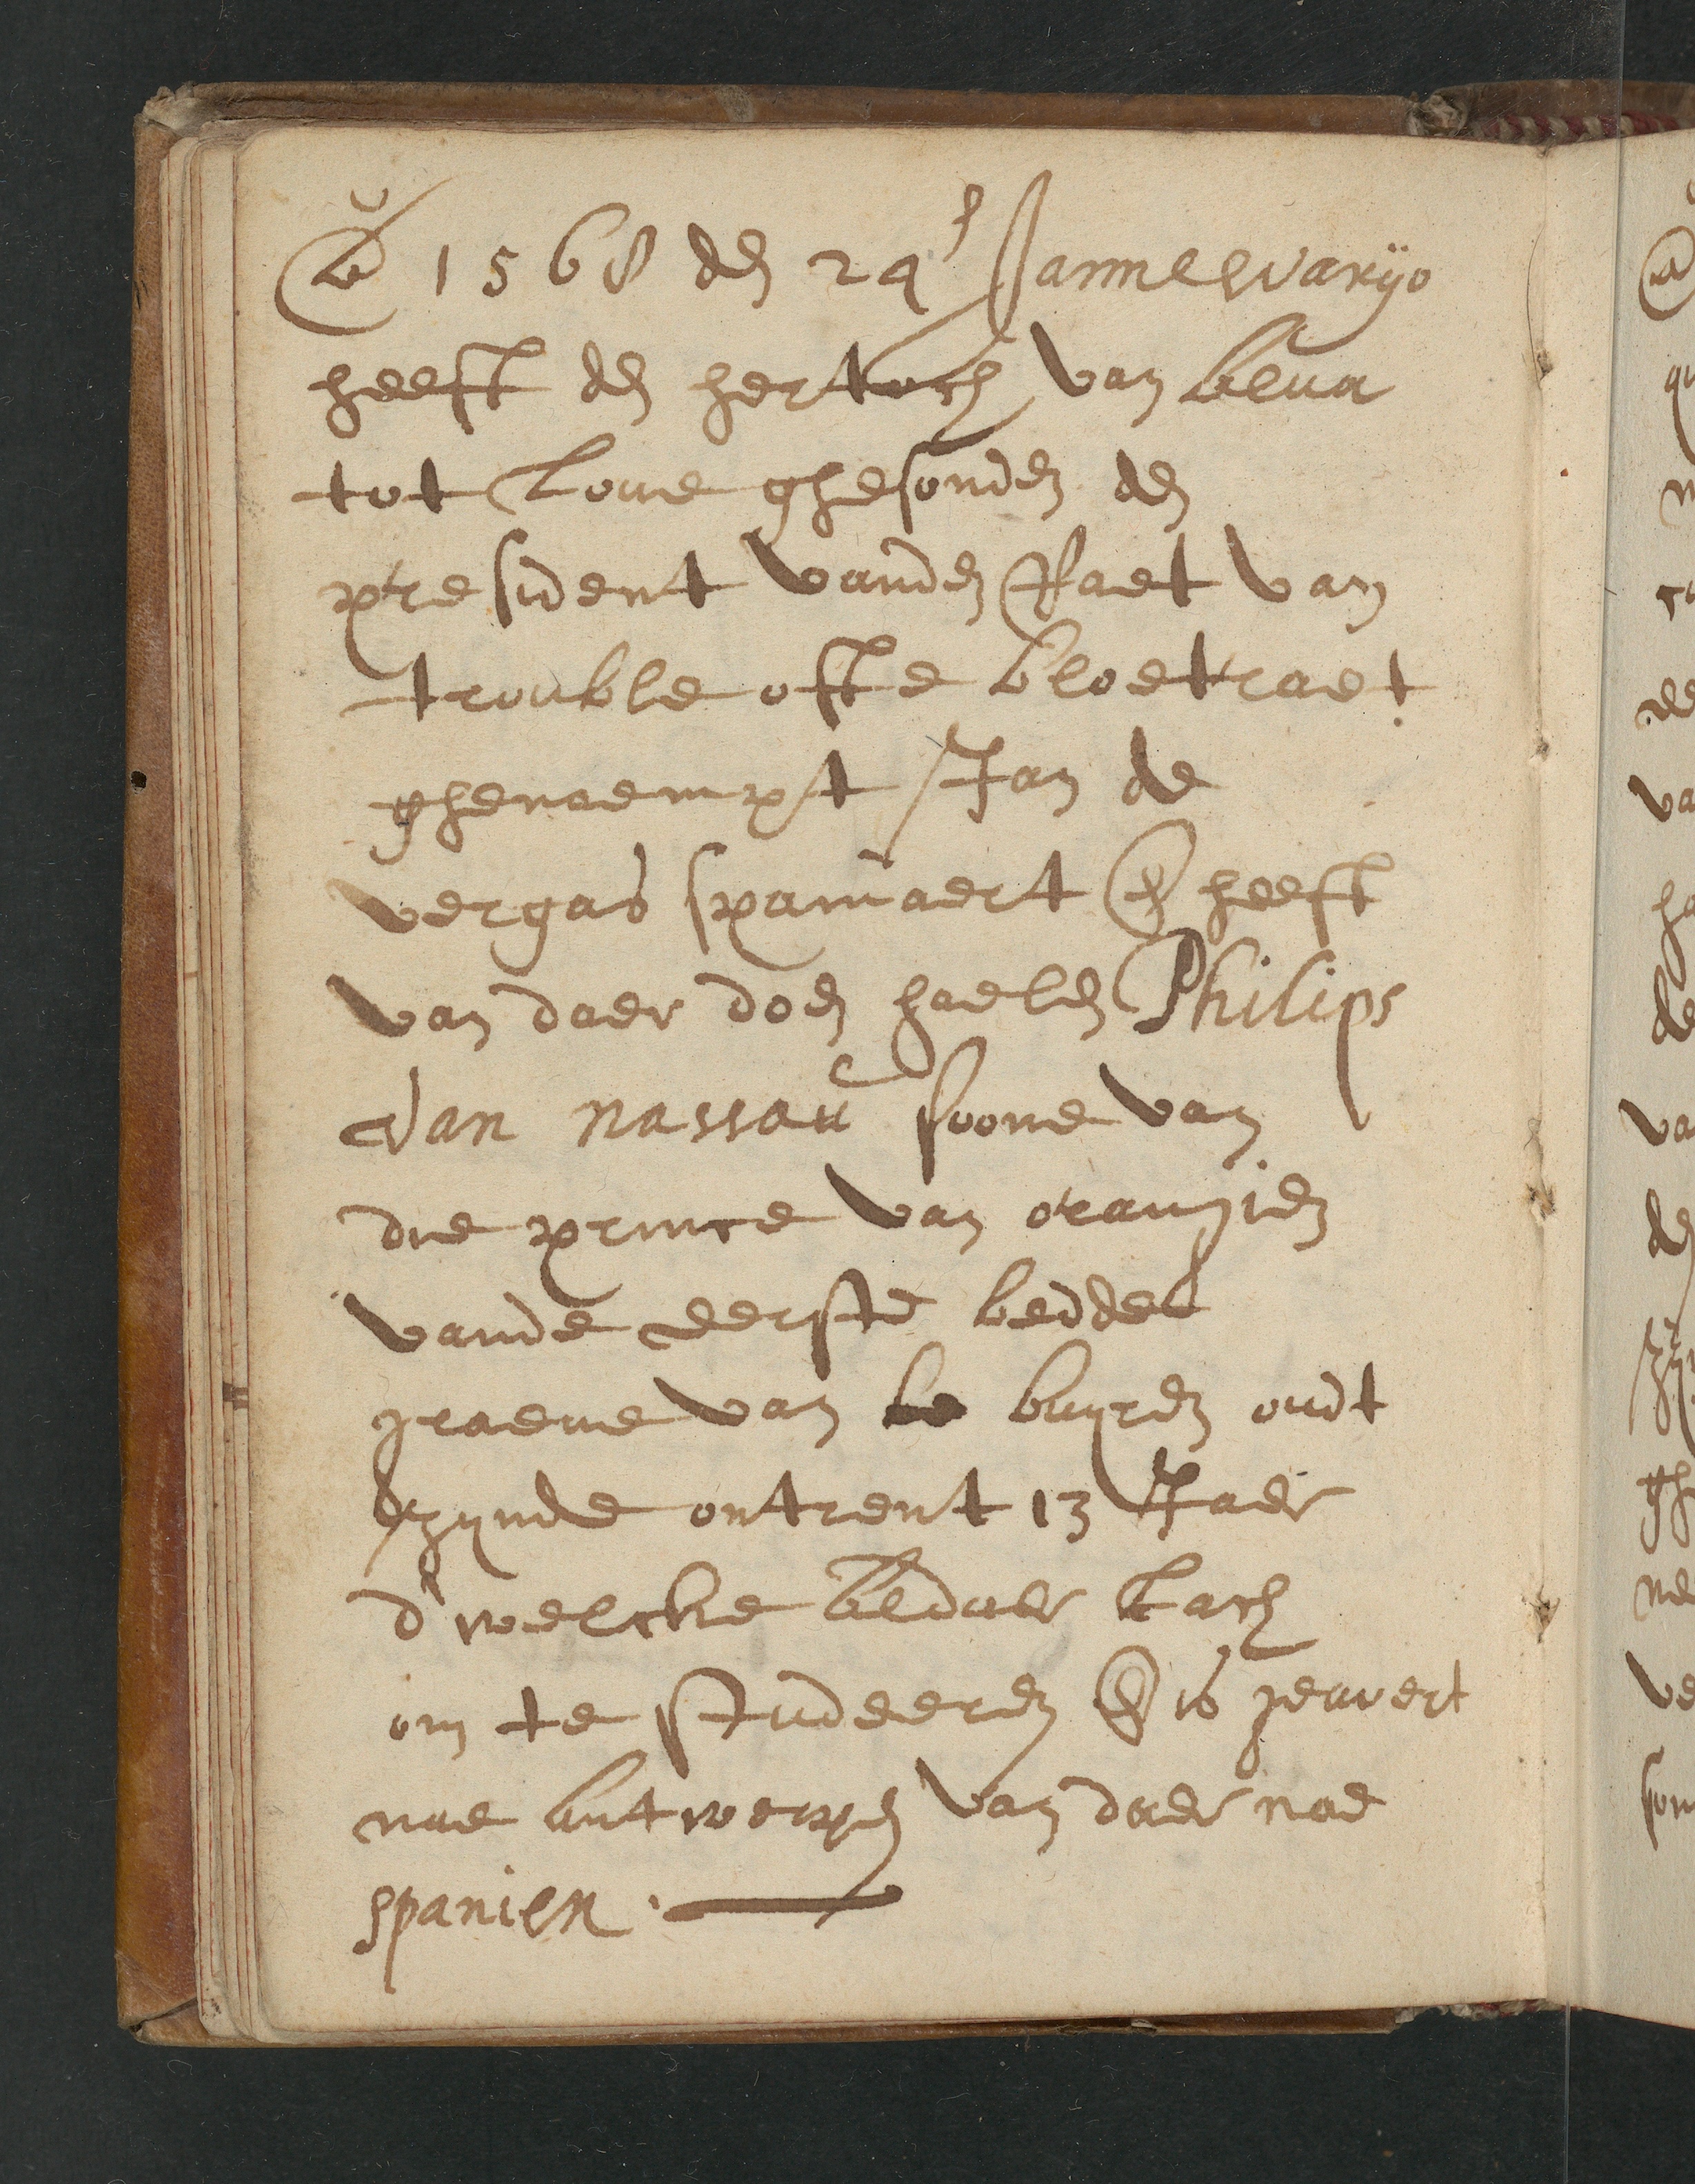 Ao 1568 den 24 Jannewarijo
heeft den hertoch van Alva
tot Love ghesonden den
president vanden Raet van
trouble ofte bloetraet
ghenaempt Jan de
vergas spaniaert en heeft
van daer doen haelen Philips
van nassau soone van
die prince van oranjien
vande eerste bedde
graeve van buyren oudt
zynde ontrent 13 Jaer
d'welcke aldaer lach
om te studeeren en is gevoert
nae Antwerpen van daer nae
spanien.